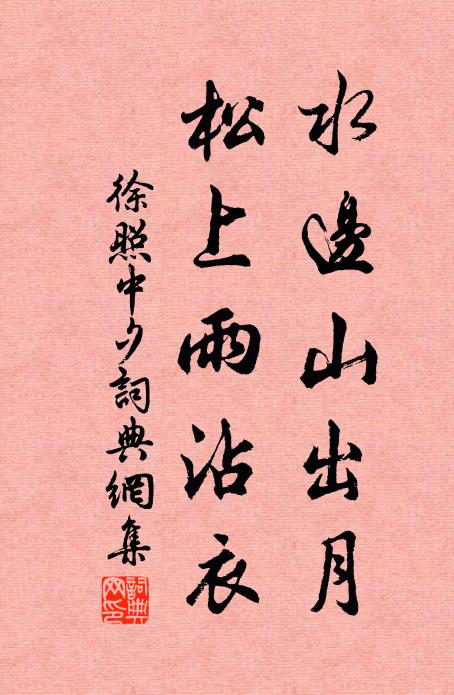 水邊山出月
松上雨沾衣
徐照中夕詞典網集
詞典网印